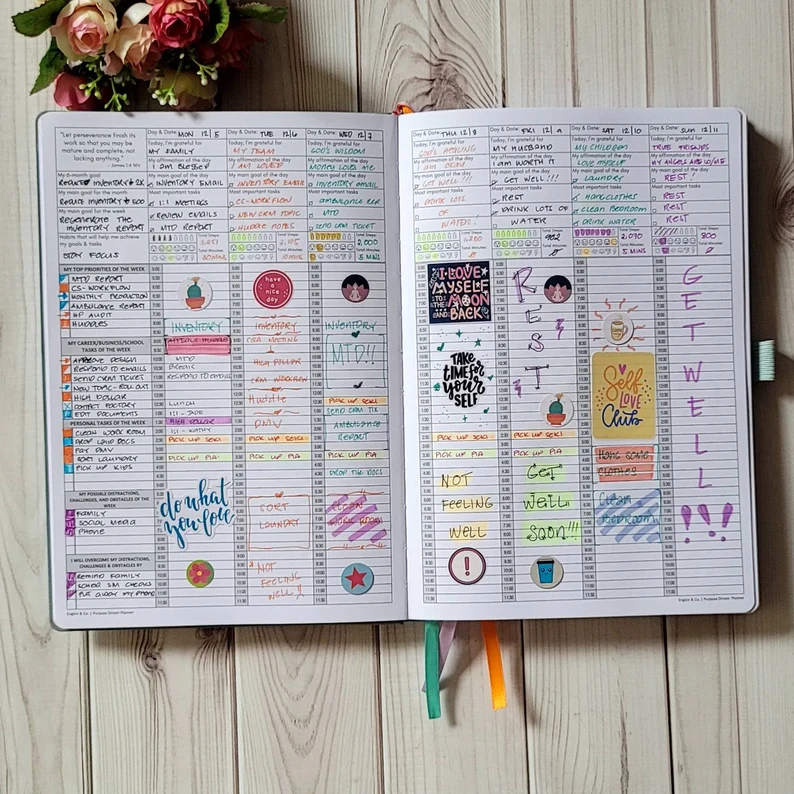 "Let perseverance finish its
work so that you may be
mature and complete, not
lacking anything."
- James 1:4 NIV
My 6-month goal
My main goal for the month
REDUCE INVENTORY
My main goal for the week
REGENERATE THE
INVENTORY REPORT
Habits that will help me achieve
my goals & tasks
STAY FOCUS
MY TOP PRIORITIES OF THE WEEK
MTD REPORT
CS-WORKFLOW
MONTHLY PRODUCTION
AMBULANCE REPORT
HP AUDIT
HUDDLES
MY CAREER/BUSINESS/SCHOOL
TASKS OF THE WEEK
APPROVE DESIGN
RESPOND TO EMAILS
SEND CRM TICKET
NEW TOPIC-ROLL OUT
HIGH DOLLAR
CONTACT FACTORY
EDIT DOCUMENTS
PERSONAL TASKS OF THE WEEK
CLEAN WORK ROOM
DROP LOAD DOCS
PAY DMV
SORT LAUNDRY
PICK UP KIDS
MY POSSIBLE DISTRACTIONS,
CHALLENGES, AND OBSTACLES OF THE
WEEK
FAMILY
SOCIAL MEDIA
PHONE
I WILL OVERCOME MY DISTRACTIONS,
CHALLENGES & OBSTACLES BY
REMIND FAMILY
SCHED SM CHECKS
PUT AWAY MY PHONE
English & Co. | Purpose Driven Planner
Day & Date: MON 12/5
Today, I'm grateful for
MY FAMILY
My affirmation of the day
I AM BLESSED
My main goal of the day
INVENTORY EMAIL
Most important tasks
1:1 MEETINGS
REVIEW EMAILS
MTD REPORT
Total Steps:
Total Minutes:
INVENTORY
MTD
BREAK
RESPOND TO EMAILS
LUNCH
1:1 - JADE
HIGH DOLLAR
1:1 - KATHY
PICK UP SEKI
PICK UP PIA
do what
you love
Day & Date: TUE 12/6
Today, I'm grateful for
MY TEAM
My affirmation of the day
I AM LOVED
My main goal of the day
INVENTORY EMAIL
Most important tasks
CS-WORKFLOW
NEW CRM TOPIC
HUDDLE NOTES
Total Steps:
Total Minutes:
10 MINS
have
a
nice
day
INVENTORY
CQA MEETING
HIGH DOLLAR
CRM WORKFLOW
Huddle
DMV
PICK UP SEKI
PICK UP PIA
SORT
LAUNDRY
*NOT
FEELING
WELL!!
Day & Date: WED 12/7
Today, I'm grateful for
GOD'S WISDOM
My affirmation of the day
MONEY LOVES ME
My main goal of the day
INVENTORY EMAIL
Most important tasks
AMBULANCE RER
MTD
SEND CRM TICKET
Total Steps:
2,000
Total Minutes:
5 MINS
INVENTORY
MTD!!
PICK UP SEKI
SEND CRM TIX
AMBULANCE
REPORT
PICK UP PIA
DROP THE DOCS
CLEAN
WORK ROOM
Day & Date: THU 12/8
Today, I'm grateful for
GOD'S HEALING
My affirmation of the day
My main goal of the day
GET WELL!!!
Most important tasks
DRINK LOTS
OF
WATER!
Total Steps:
Total Minutes:
I LOVE
MYSELF
TO THE MOON
AND BACK
TAKE
TIME FOR
YOUR
SELF
PICK UP SEKI
PICK UP PIA
NOT
FEELING
WELL
!
Day & Date: FRI 12/9
Today, I'm grateful for
MY HUSBAND
My affirmation of the day
I AM WORTH IT
My main goal of the day
GET WELL!!!
Most important tasks
REST
DRINK LOTS OF
WATER
Total Steps:
Total Minutes:
R
E
S
T
PICK UP SEKI
PICK UP PIA
GET
WELL
SOON!!!
Day & Date: SAT 12/10
Today, I'm grateful for
MY CHILDREN
My affirmation of the day
I LOVE MYSELF
My main goal of the day
LAUNDRY
Most important tasks
HANG CLOTHES
CLEAN BEDROOM
DRINK WATER
Total Steps:
2,070
Total Minutes:
5 MINS
Self
LOVE
Club
HANG SOME
CLOTHES
CLEAN
BEDROOM
Day & Date: SUN 12/11
Today, I'm grateful for
TRUE FRIENDS
My affirmation of the day
MY ANGELS ARE W/ ME
My main goal of the day
REST!
Most important tasks
REST
REST
REST
Total Steps:
800
Total Minutes:
G
E
T
W
E
L
L
!!!
English & Co. | Purpose Driven Planner